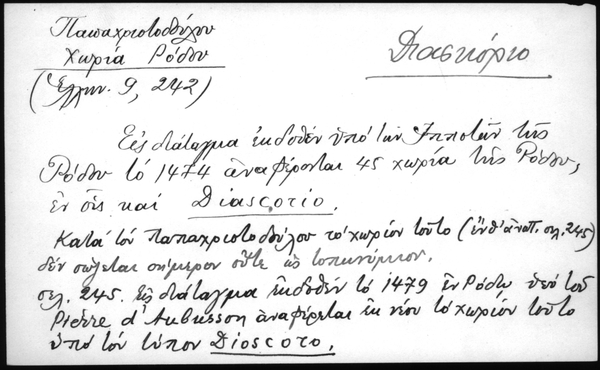 Παπαχριστοδούλου
Χωριά Ρόδου
(Ἑλλην. 9, 242)
Διασκόριο
Εἰς διάταγμα ἐκδοθέν ὑπό τῶν Ἱπποτῶν τῆς
Ρόδου τό 1474 ἀναφέρονται 45 χωριά τῆς Ρόδου,
ἐν οἷς καί Diascorio.
Κατά τόν Παπαχριστοδούλου τό χωρίον τοῦτο (ἔνθ' ἀνωτ. σελ. 245)
δέν σῴζεται σήμερον οὔτε ὡς τοπωνύμιον.
σελ. 245. Εἰς διάταγμα ἐκδοθέν τό 1479 ἐν Ρόδῳ ὑπό τοῦ
Pierre d'Aubusson ἀναφέρεται ἐκ νέου τό χωρίον τοῦτο
ὑπό τόν τύπον Dioscoro.